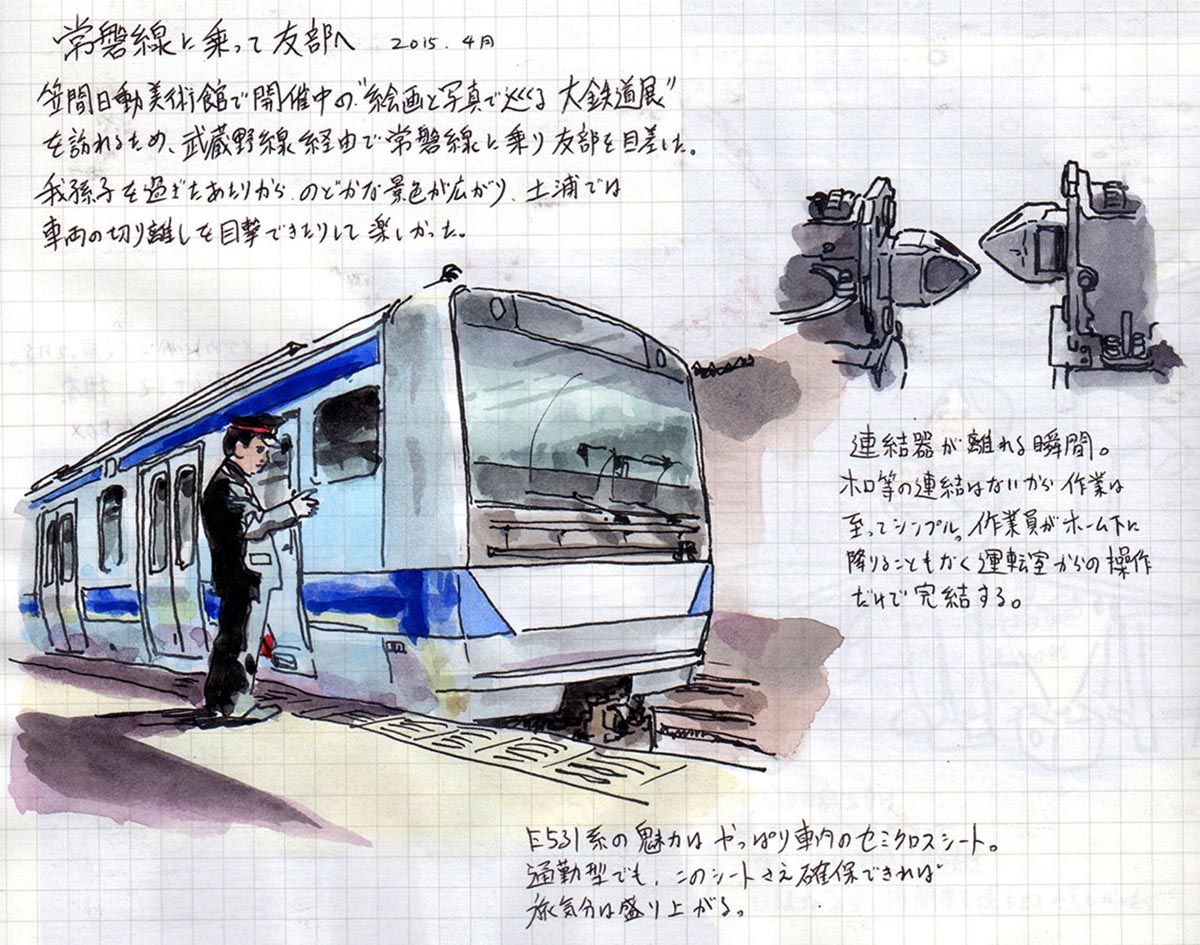 常磐線に乗って友部へ 2015.4月
笠間日動美術館で開催中の"絵画と写真で巡る 大鉄道展"
を訪れるため、武蔵野線経由で常磐線に乗り友部を目差した。
我孫子を過ぎたあたりから、のどかな景色が広がり、土浦では
車両の切り離しを目撃できたりして楽しかった。
連結器が離れる瞬間。
ホロ等の連結はないから作業は
至ってシンプル。作業員がホーム下に
降りることもなく運転室からの操作
だけで完結する。
E531系の魅力はやっぱり車内のセミクロスシート。
通勤型でも、このシートさえ確保できれば
旅気分は盛り上がる。